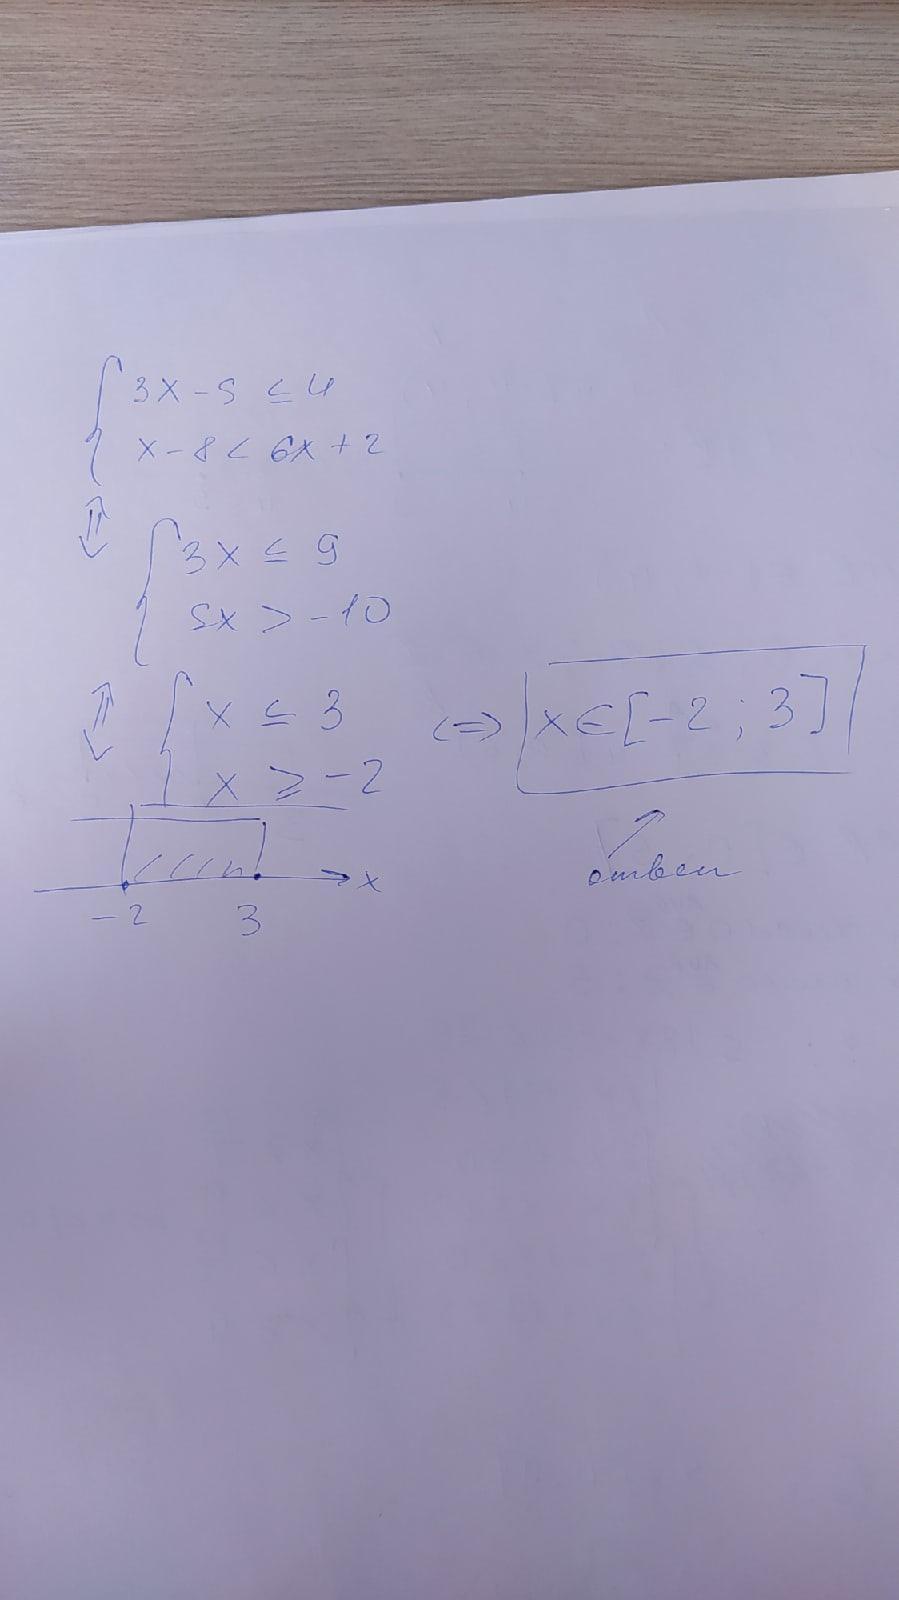 3x-5 ≤ 4
x-8 < 6x+2
⇕
3x ≤ 9
5x > -10
⇕
x ≤ 3
x ⩾ -2
⇔ x∈[-2; 3]
ответ
x
-2 3